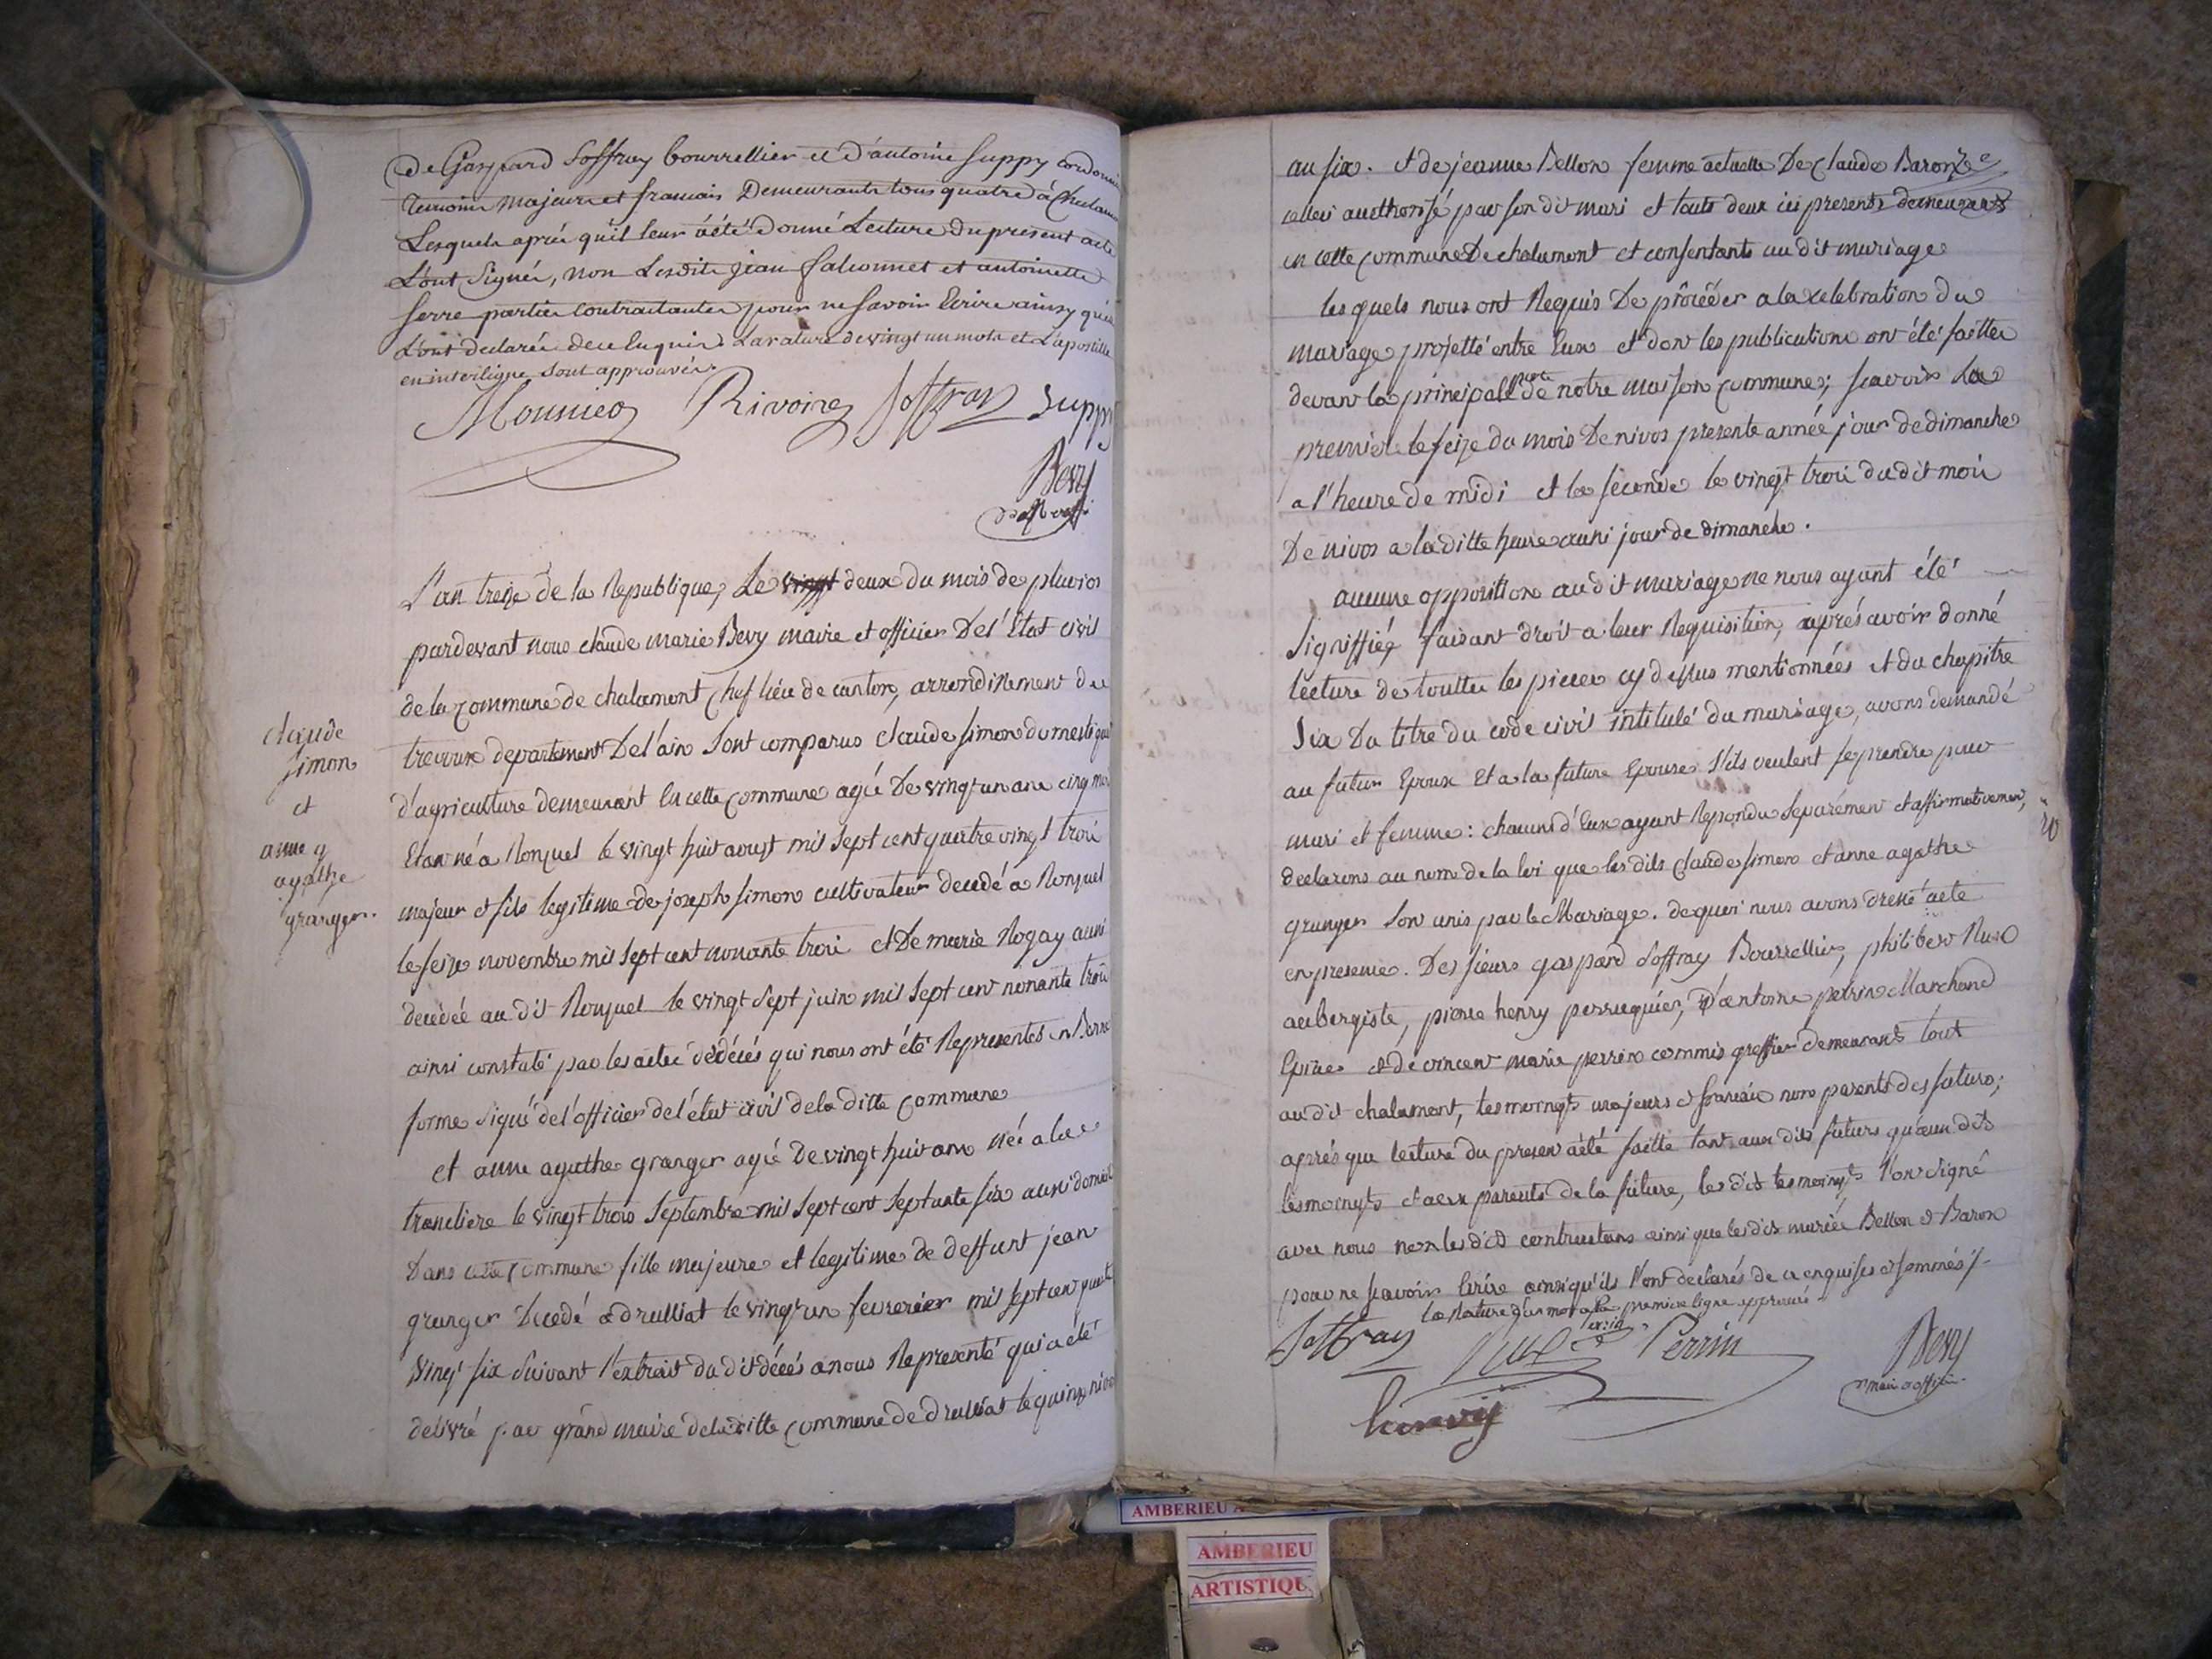 de Gaspard Soffray bourrellier et d'antoine Suppy cordonni
temoins majeurs et francais Demeurants tous quatre à Chalam
Lesquels aprés qu'il leur a été donné Lecture du present acte
L'ont Signés, non Lesdits jean falconnet et antoinette
Serre parties contractantes pour ne savoir Ecrire ainsy qu'ils
L'ont declarés de ce Enquis. La rature de vingt un mots et L'apostille
en interligne sont approuvés.
Monnier Rivoire Soffray Suppy
Bevy
L'an treize de la Republique, Le vingt deux du mois de pluvios
pardevant nous claude marie Bevy maire et officier De l'Etat civil
de la commune de chalamont Chef lieu de canton, arrondissement de
trevoux departement De l'ain sont comparus claude simon domestique
d'agriculture demeurant en cette commune agé De vingt un ans cinq moi
Etant né a Ronzuel le vingt huit aoust mil sept cent quatre vingt trois
majeur et fils legitime de joseph simon cultivateur decedé a Ronzuel
le seize novembre mil sept cent nonante trois et De marie Rogay aussi
decedée au dit Ronzuel le vingt sept juin mil sept cent nonante trois
ainsi constaté par les actes dédécés qui nous ont été Representés en Bonne
forme signé de l'officier de l'état civil de la ditte commune
et anne agathe granger agée De vingt huit ans née a la
trancliere le vingt trois Septembre mil sept cent septante six aussi domicil
Dans cette commune fille majeure et legitime de deffunt jean
granger Decedé a druillat le vingt un fevrerier mil sept cent quatre
vingt six suivant l'extrait du dit décés a nous Representé qui a été
delivré par grand maire de la ditte commune de druillat le quinze nivo
claude
simon
et
anne
agathe
granger.
an six. et de jeanne Bellon femme actuelle De claude Baron
celleci authorisé par son dit mari et touts deux ici presents demeurants
en cette commune De chalamont et consentants au dit mariage
les quels nous ont Requis De procéder a la celebration du
mariage projetté entre Eux et dont les publications ont été faittes
devant la principalle porte de notre maison commune; scavoir La
premiere le seize du mois De nivos presente année jour de dimanche
a l'heure de midi et la seconde le vingt trois du dit mois
De nivos a la ditte heure aussi jour de dimanche.
aucune opposition audit mariage ne nous ayant été
Signiffiée faisant droit a leur Requisition, aprés avoir donné
lecture de touttes les pieces cy dessus mentionnées et du chapitre
Six Du titre du code civil intitulé du mariage, avons demandé
au futur Epoux Et a la future Epouse s'ils veulent se prendre pour
mari et femme: chacun d'Eux ayant Repondu separément et affirmativement,
declarons au nom de la loi que les dits claude simon et anne agathe
granger sont unis par le Mariage. de quoi nous avons dressé acte
en presence. Des sieurs gaspard Soffray Bourrellier, philibert
aubergiste, pierre henry perruquier, D'antoine perrin Marchand
Epicier et de vincent marie perrin commis greffier demeurants tout
au dit chalamont, tesmoingts majeurs et francais non parents des futurs;
aprés que lecture du present a été faitte tant aux dits futurs qu'aux dits
tesmoingts et aux parents de la future, les dits tesmoingts l'ont signé
avec nous non les dits contractans ainsi que les dits mariés Bellon et Baron
pour ne scavoir Ecrire ainsi qu'ils l'ont declarés de ce enquises et sommés.
La Rature d'un mot a la premiere ligne approuvé
Soffray Perrin
Bevy
maire officier
henry
AMBERIEU
AMBERIEU
ARTISTIQU